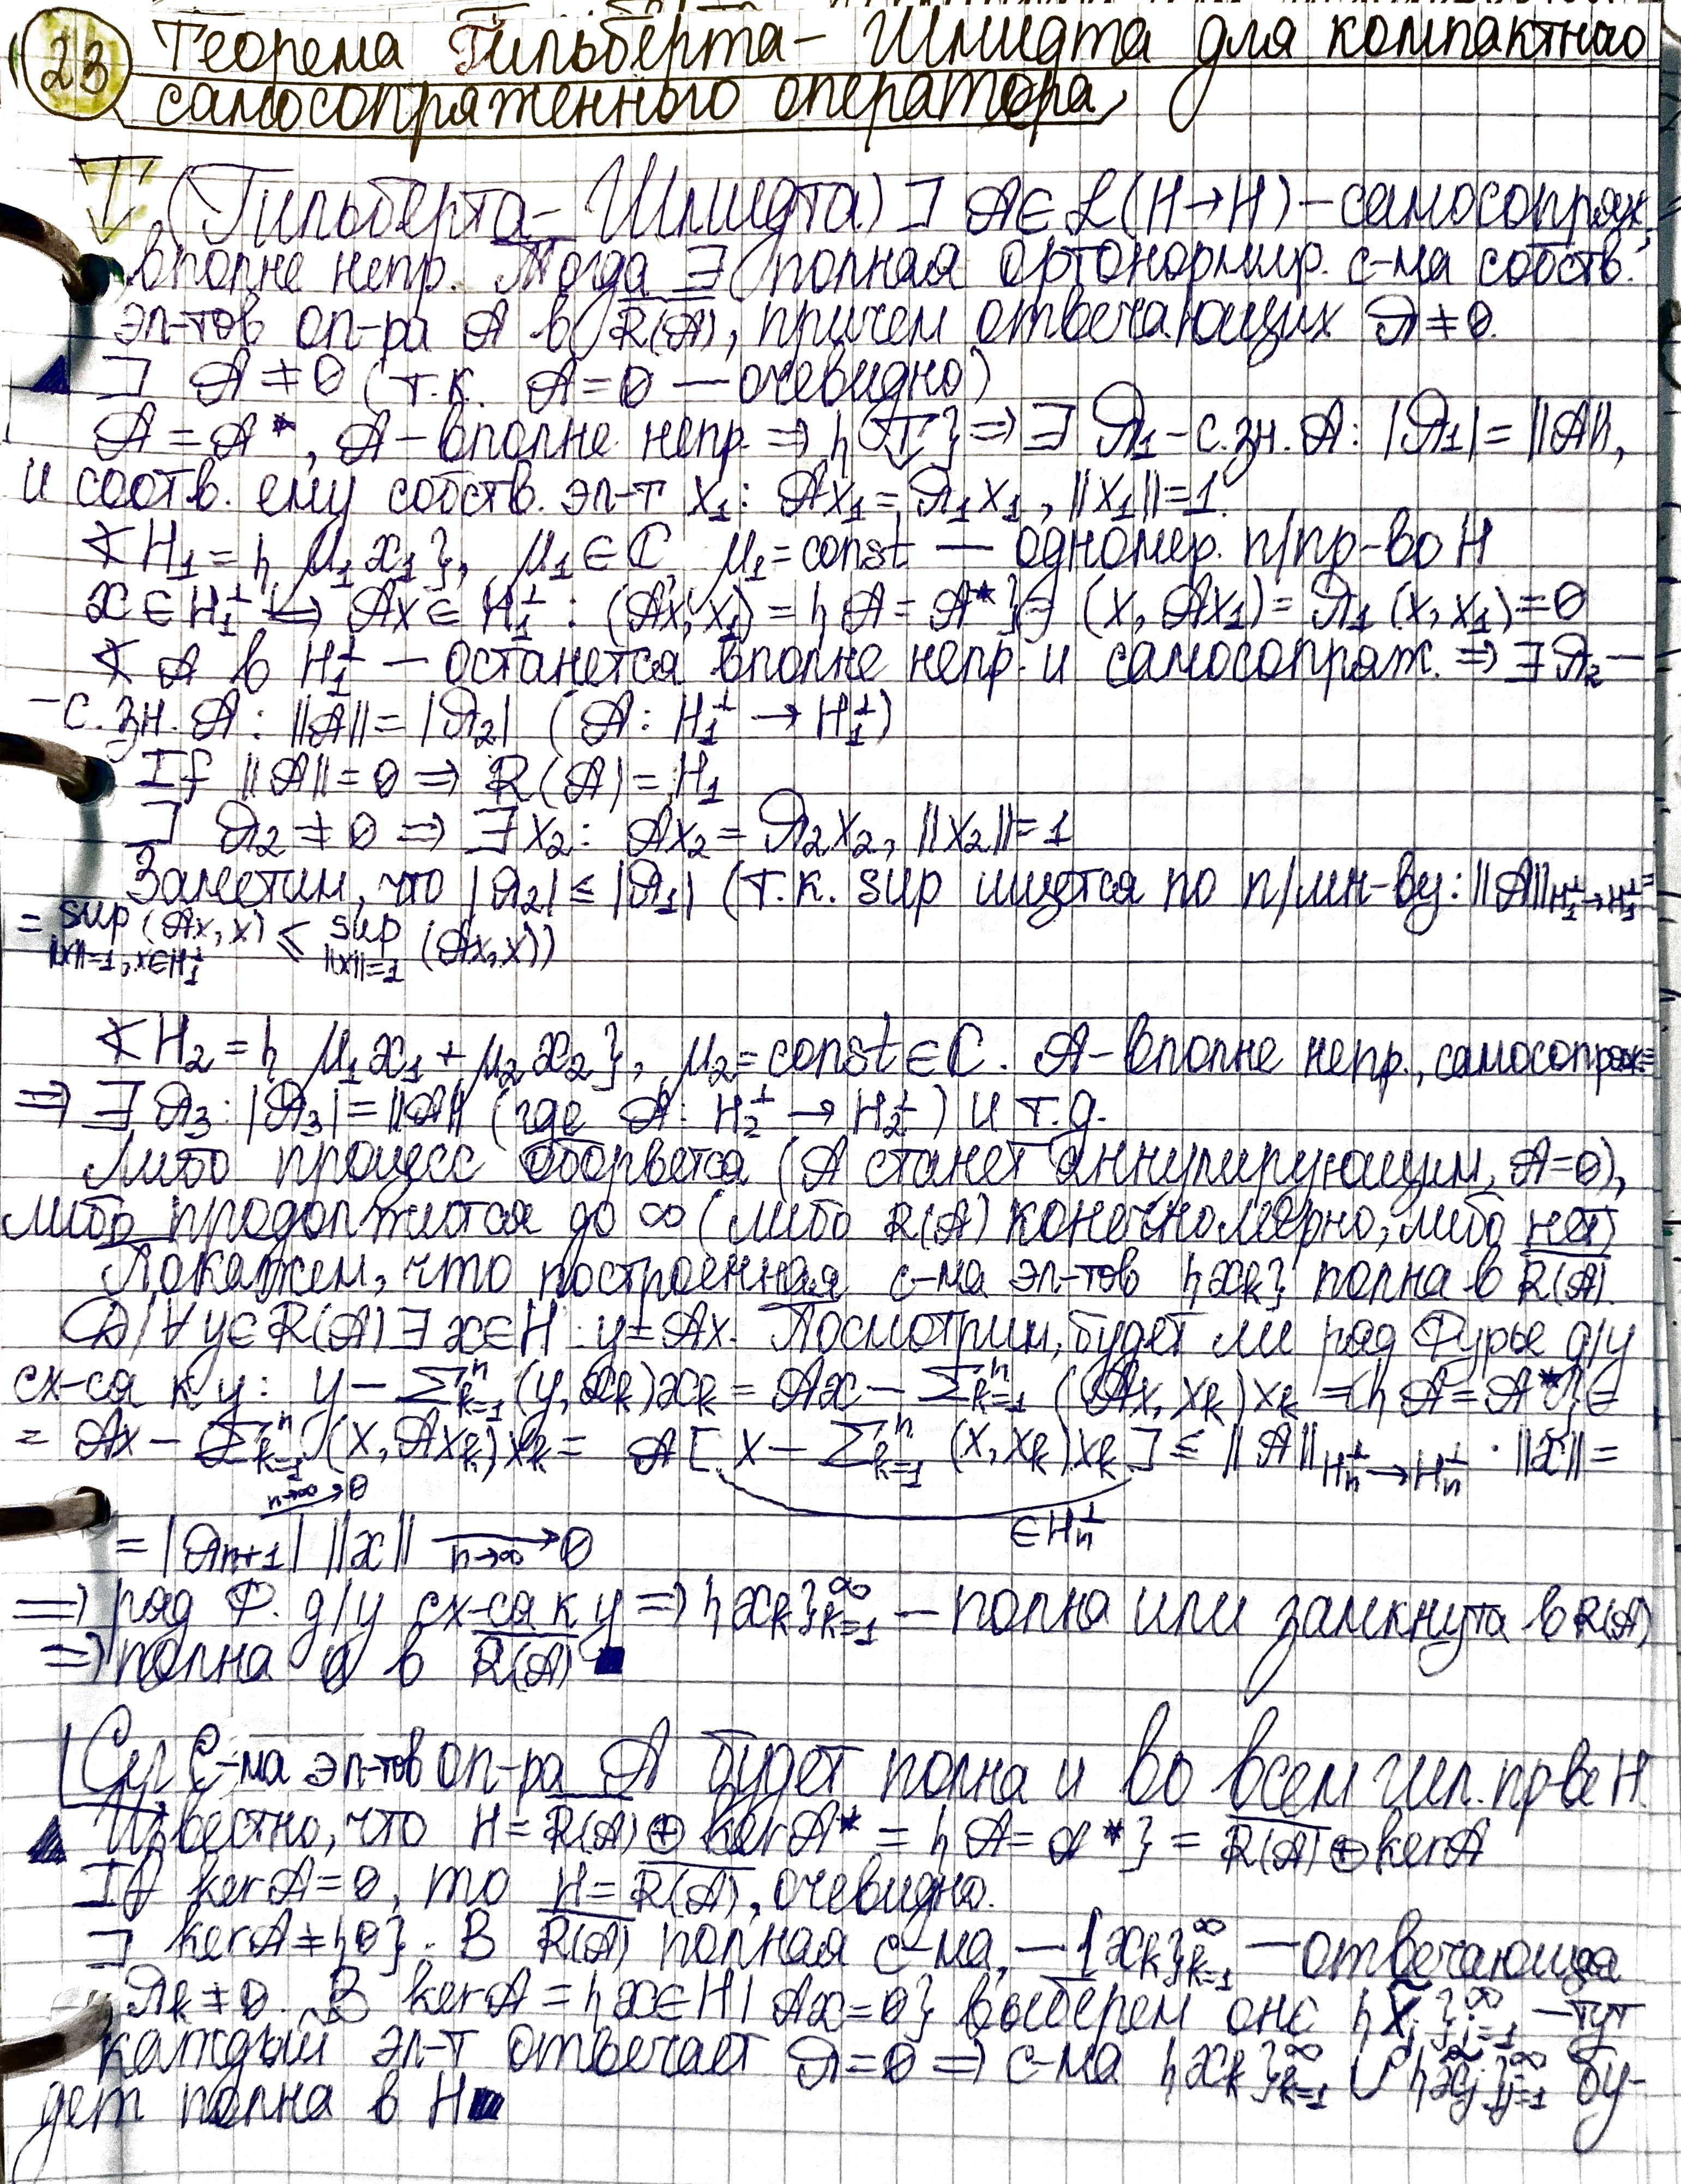 23 Теорема Гильберта - Шмидта для компактного
самосопряженного оператора,
T. (Гильберта - Шмидта) ] A ∈ ℒ(H→H) - самосопряж.,
вполне непр. Тогда ∃ полная ортонормир. с-ма собств.
эл-тов оп-ра A в \overline{R(A)}, причем отвечающих λ ≠ 0.
▲ ] A ≠ 0 (т.к. A = 0 — очевидно)
A = A*, A - вполне непр. ⇒ {T} ⇒ ∃ λ₁ - с.зн. A: |λ₁| = ||A||,
и соотв. ему собств. эл-т x₁: Ax₁ = λ₁x₁, ||x₁|| = 1.
∢ H₁ = {μ₁x₁}, μ₁ ∈ ℂ, μ₁ = const — одномер. п/пр-во H
x ∈ H₁^⊥ ⇔ Ax ∈ H₁^⊥: (Ax, x₁) = {A = A*} = (x, Ax₁) = λ₁(x, x₁) = 0
∢ A в H₁^⊥ — останется вполне непр. и самосопряж. ⇒ ∃ λ₂ -
- с.зн. A: ||A|| = |λ₂| (A: H₁^⊥ → H₁^⊥)
If ||A|| = 0 ⇒ R(A) = H₁
] λ₂ ≠ 0 ⇒ ∃ x₂: Ax₂ = λ₂x₂, ||x₂|| = 1
Заметим, что |λ₂| ≤ |λ₁| (т.к. sup ищется по п/мн-ву: ||A||_{H₁^⊥→H₁^⊥} =
= sup_{||x||=1, x∈H₁^⊥} (Ax, x) ≤ sup_{||x||=1} (Ax, x))
∢ H₂ = {μ₁x₁ + μ₂x₂}, μ₂ = const ∈ ℂ. A - вполне непр., самосопряж ⇒
⇒ ∃ λ₃: |λ₃| = ||A|| (где A: H₂^⊥ → H₂^⊥) и т.д.
Либо процесс оборвется (A станет аннулирующим, A = 0),
либо продолжится до ∞ (либо R(A) конечномерно, либо нет)
Покажем, что построенная с-ма эл-тов {x_k} полна в \overline{R(A)}.
Д/∀ y ∈ R(A) ∃ x ∈ H: y = Ax. Посмотрим, будет ли ряд Фурье д/y
сх-ся к y: y - Σ_{k=1}^n (y, x_k)x_k = Ax - Σ_{k=1}^n (Ax, x_k)x_k = {A = A*} =
= Ax - Σ_{k=1}^n (x, Ax_k)x_k = A[x - Σ_{k=1}^n (x, x_k)x_k] ≤ ||A||_{H_n^⊥→H_n^⊥} · ||x|| =
n→∞ → 0
∈ H_n^⊥
= |λ_{n+1}| ||x|| →_{n→∞} 0
⇒ ряд Ф. д/y сх-ся к y ⇒ {x_k}_{k=1}^∞ — полна или замкнута в R(A)
⇒ полна в \overline{R(A)} ■
Сл. С-ма эл-тов оп-ра A будет полна и во всем гил. пр-ве H.
▲ Известно, что H = \overline{R(A)} ⊕ ker A* = {A = A*} = \overline{R(A)} ⊕ ker A
If ker A = 0, то H = \overline{R(A)}, очевидно.
] ker A ≠ {0}. В \overline{R(A)} полная с-ма, — {x_k}_{k=1}^∞ — отвечающая
λ_k ≠ 0. В ker A = {x ∈ H | Ax = 0} выберем онс {x̃_j}_{j=1}^∞ — тут
каждый эл-т отвечает λ = 0 ⇒ с-ма {x_k}_{k=1}^∞ ∪ {x̃_j}_{j=1}^∞ бу-
дет полна в H ■